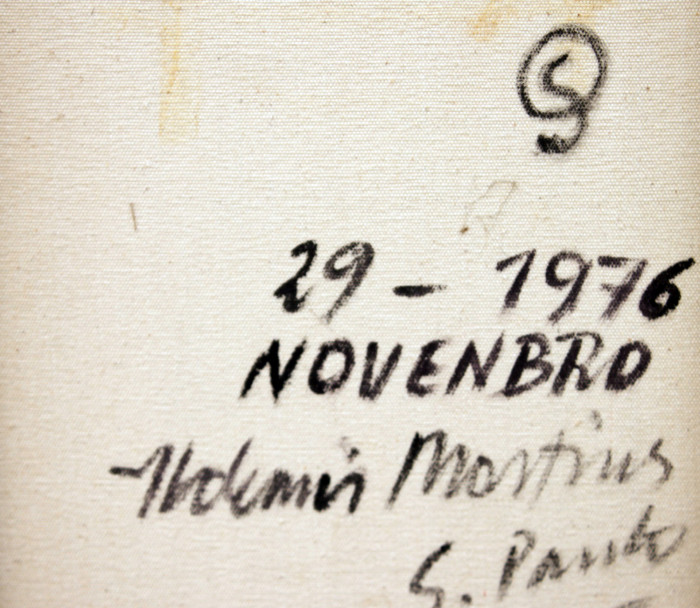 29 - 1976
NOVENBRO
Aldemir Martins
S. Paulo